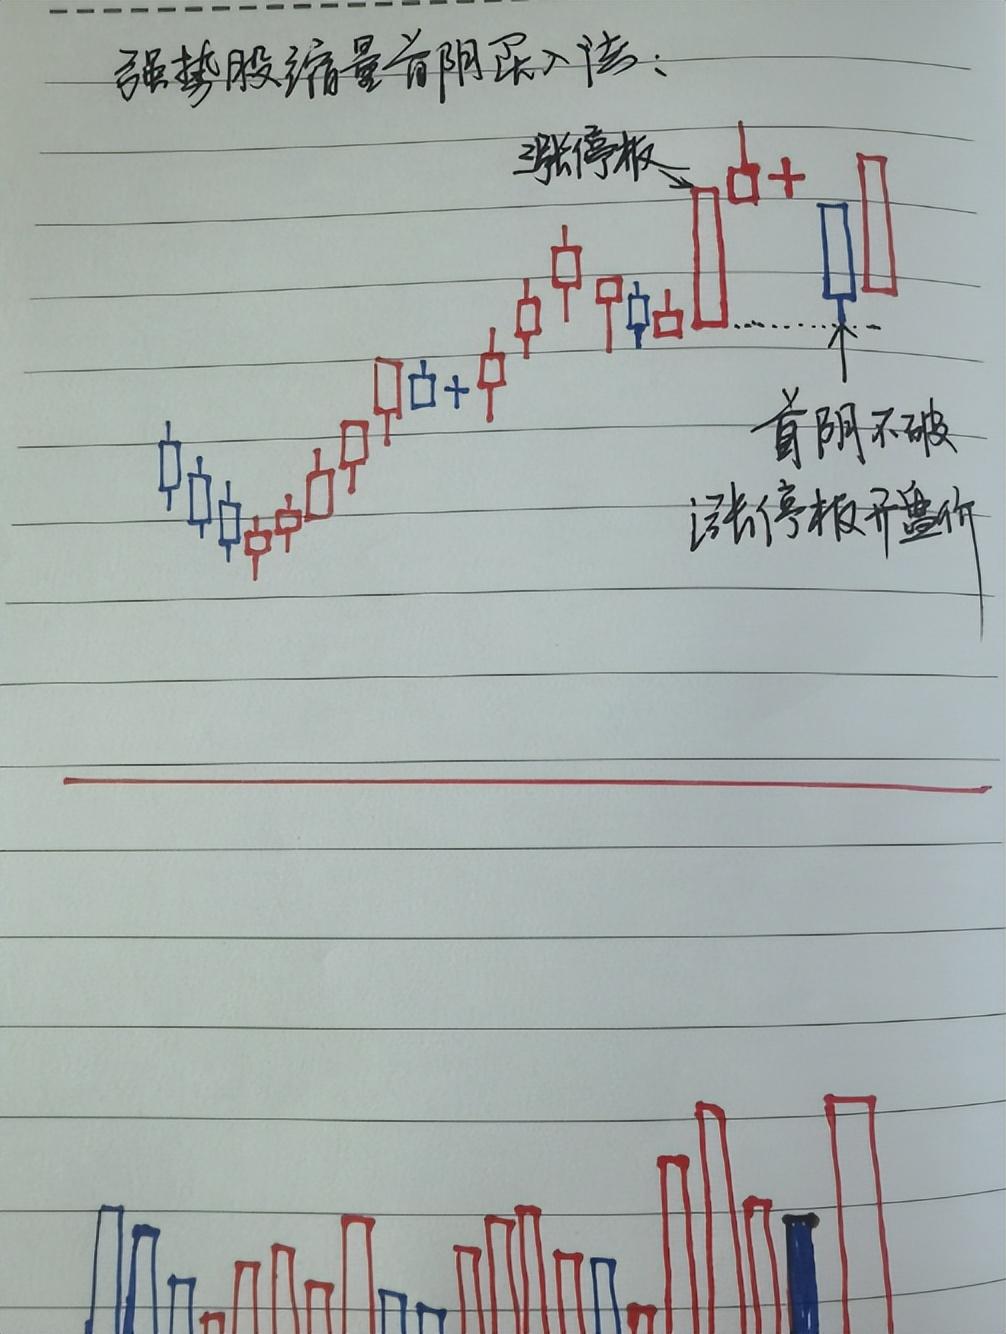 强势股缩量首阴买入法：
涨停板
首阴不破
涨停板开盘价